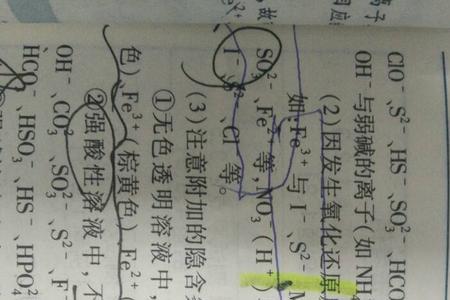 ClO⁻、S²⁻、HS⁻、SO₃²⁻、HCO
OH⁻与弱碱的离子(如 NH₄
(2)因发生氧化还原
如:Fe³⁺与 I⁻、S²⁻、M
SO₃²⁻、Fe²⁺等,NO₃⁻(H⁺)
I⁻、S²⁻、Cl⁻等。
(3)注意附加的隐含
①无色透明溶液中,
色)、Fe³⁺(棕黄色)、Fe²⁺(
②强酸性溶液中,不
OH⁻、CO₃²⁻、SO₃²⁻、S²⁻、F⁻
HCO₃⁻、HSO₃⁻、HS⁻、HPO₄